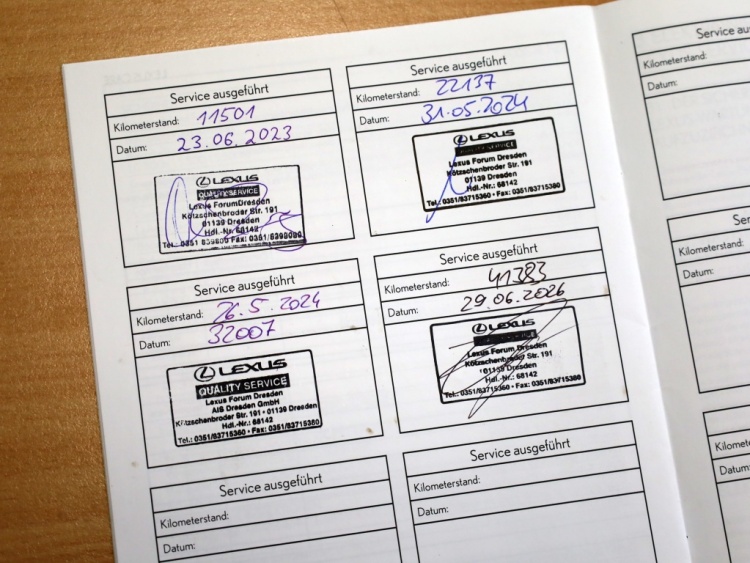 Service ausgeführt
Kilometerstand: 11501
Datum: 23.06.2023
LEXUS
QUALITY SERVICE
Lexus ForumDresden
Kötzschenbroder Str. 191
01139 Dresden
Hdl.-Nr.: 68142
Service ausgeführt
Kilometerstand: 22137
Datum: 31.05.2024
LEXUS
Lexus Forum Dresden
Kötzschenbroder Str. 191
01139 Dresden
Hdl.-Nr.: 68142
Tel.: 0351/83715360 • Fax: 0351/83715380
Service ausgeführt
Kilometerstand: 26.5.2024
Datum: 32007
LEXUS
QUALITY SERVICE
Lexus Forum Dresden
AIS Dresden GmbH
Kötzschenbroder Str. 191 • 01139 Dresden
Hdl.-Nr.: 68142
Tel.: 0351/83715360 • Fax: 0351/83715380
Service ausgeführt
Kilometerstand: 41383
Datum: 29.06.2026
LEXUS
Lexus Forum Dresden
Kötzschenbroder Str. 191
01139 Dresden
Hdl.-Nr.: 68142
Tel.: 0351/83715360 • Fax: 0351/83715380
Service ausgeführt
Kilometerstand:
Datum:
Service ausgeführt
Kilometerstand:
Datum:
Service
Kilometerstand:
Datum:
Kilometerstand:
Datum:
Datum: